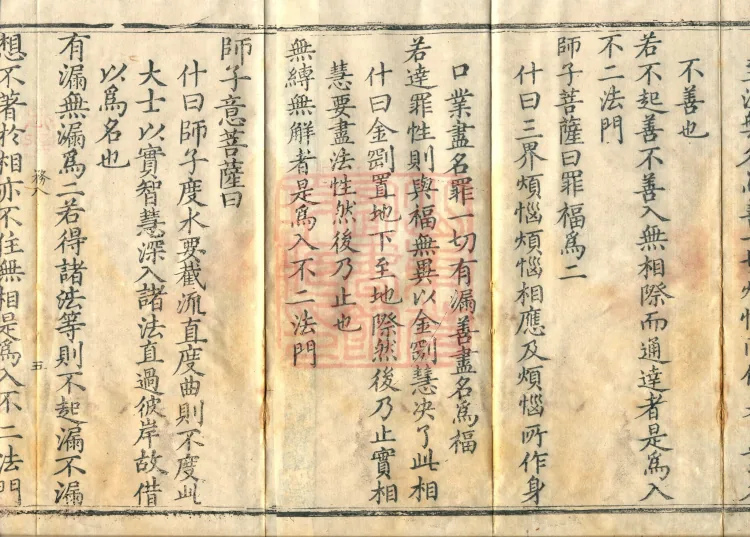 不善也
若不起善不善入無相際而通達者是爲入
不二法門
師子菩薩曰罪福爲二
什曰三界煩惱煩惱相應及煩惱所作身
口業盡名罪一切有漏善盡名爲福
若達罪性則與福無異以金剛慧决了此相
什曰金剛置地下至地際然後乃止實相
慧要盡法性然後乃止也
無縛無解者是爲入不二法門
師子意菩薩曰
什曰師子度水要截流直度曲則不度此
大士以實智慧深入諸法直過彼岸故借
以爲名也
有漏無漏爲二若得諸法等則不起漏不漏
五
想不著於相亦不住無相是爲入不二法門